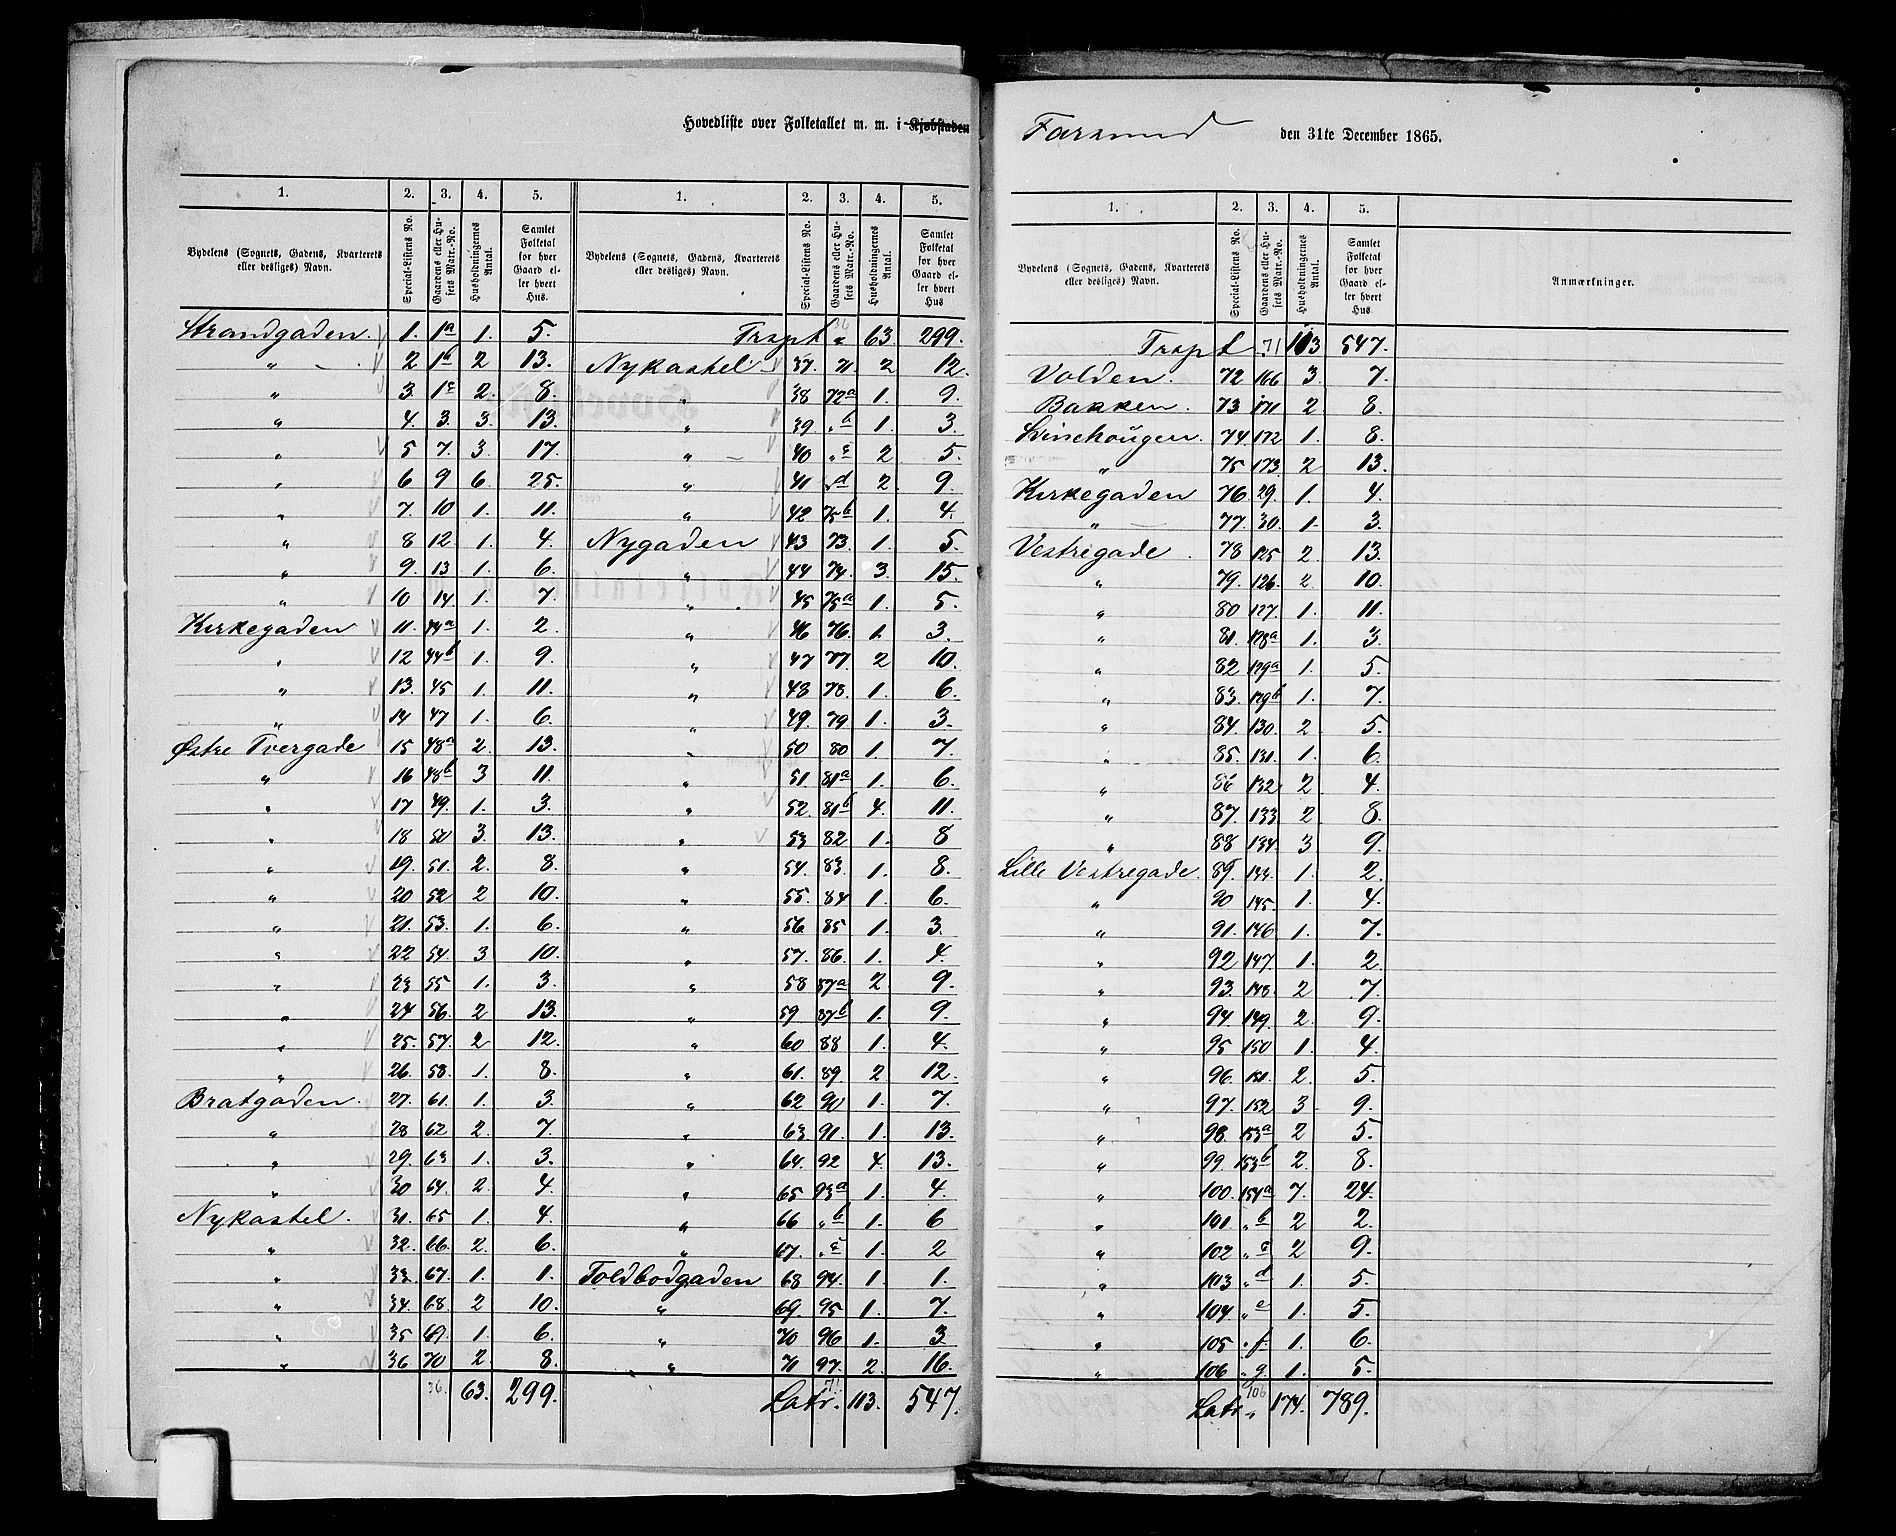 Hovedliste over Folketallet m. m. i Kjøbstaden Farsund den 31te December 1865.
1. 2. 3. 4. 5. 1. 2. 3. 4. 5.
Bydelens (Sognets, Gadens, Kvarterets eller desliges) Navn. Special-Listens No. Gaardens eller Husets Matr.-No. Husholdningernes Antal. Samlet Folketal for hver Gaard eller hvert Hus. Bydelens (Sognets, Gadens, Kvarterets eller desliges) Navn. Special-Listens No. Gaardens eller Husets Matr.-No. Husholdningernes Antal. Samlet Folketal for hver Gaard eller hvert Hus
Strandgaden. 1. 1a 1. 5.
" 2 1b 2 13.
" 3. 1c 2. 8.
" 4. 3. 3. 13.
" 5 7. 3. 17.
" 6 9 6. 25.
" 7. 10 1. 11.
" 8 12. 1. 4.
" 9. 13 1. 6.
" 10 14. 1. 7.
Kirkegaden 11. 44a 1. 2
" 12 44b 1. 9.
" 13. 45 1. 11.
" 14 47 1. 6.
Østre Tvergade 15 48a 2. 13.
" 16 48b 3 11.
" 17 49. 1. 3.
" 18 50 3. 13.
" 19. 51. 2. 8.
" 20 52 2 10.
" 21. 53. 1. 6.
" 22 54. 3 10.
" 23 55 1. 3.
" 24 56. 2 13.
" 25. 57. 2 12.
" 26. 58. 1. 8.
Bratgaden. 27. 61. 1. 3.
" 28 62 2. 7.
" 29. 63 1. 3.
" 30 64. 2. 4.
Nykastel. 31. 65 1. 4.
" 32. 66. 2. 6.
" 33. 67. 1. 1.
" 34. 68. 2 10.
" 35 69. 1. 6.
" 36 70 2 8.
36. 63. 299.
Trspt 36 " 63. 299.
Nykastel 37. 71. 2 12.
" 38 72a 1. 9.
" 39. "b 1. 3.
" 40 "c 2 5.
" 41 "d 2. 9.
" 42 75b 1. 4.
Nygaden 43 73. 1. 5.
" 44 74. 3. 15.
" 45 75a 1. 5.
" 46 76. 1. 3.
" 47 77. 2 10.
" 48 78. 1. 6.
" 49. 79 1. 3.
" 50 80 1. 7.
" 51. 81a 1. 6.
" 52. 81b 4. 11.
" 53 82 1. 8
" 54. 83. 1. 8.
" 55. 84 1. 6.
" 56 85 1. 3.
" 57. 86. 1. 4.
" 58 87a 2. 9.
" 59 87b 1. 9.
" 60 88 1. 4.
" 61. 89. 2 12.
" 62 90 1. 7.
" 63 91. 1. 13.
" 64. 92 4. 13.
" 65 93a 1. 4.
" 66 "b 1. 6
" 67. "c 1. 2
Toldbodgaden 68 94. 1. 1.
" 69. 95 1. 7.
" 70 96 1. 3.
" 71 97. 2. 16.
Latr. 71 113. 547.
1. 2. 3. 4. 5.
Bydelens (Sognets, Gadens, Kvarterets eller desliges) Navn. Special-Listens No. Gaardens eller Husets Matr.-No. Husholdningernes Antal. Samlet Folketal for hver Gaard eller hvert Hus. Anmærkninger.
Trspt 71 113 547.
Volden. 72 166 3. 7.
Bakken. 73 171 2. 8.
Svinehougen. 74. 172 1. 8.
" 75 173 2 13.
Kirkegaden 76. 29. 1. 4.
" 77. 30. 1. 3.
Vestregade. 78 125 2. 13.
" 79. 126. 2. 10.
" 80 127. 1. 11.
" 81. 128a 1. 3.
" 82 129a 1. 5.
" 83. 129b 1. 7.
" 84. 130. 2. 5.
" 85. 131. 1. 6.
" 86 132. 2 4.
" 87. 133. 2. 8.
" 88 134. 3 9.
Lille Vestregade. 89. 144. 1. 2.
" 90 145. 1. 4.
" 91. 146 1. 7.
" 92 147. 1. 2
" 93. 148. 2 7.
" 94. 149. 2. 9.
" 95 150 1. 4.
" 96. 151. 2. 5.
" 97. 152 3 9.
" 98. 153a 2 5.
" 99. 153b 2. 8.
" 100. 154a 7. 24.
" 101. "b 2 2.
" 102 "c 2 9.
" 103 "d 1. 5.
" 104. "e 1. 5.
" 105 "f. 1. 6.
" 106 "g. 1. 5.
Latr. 106 174. 789.